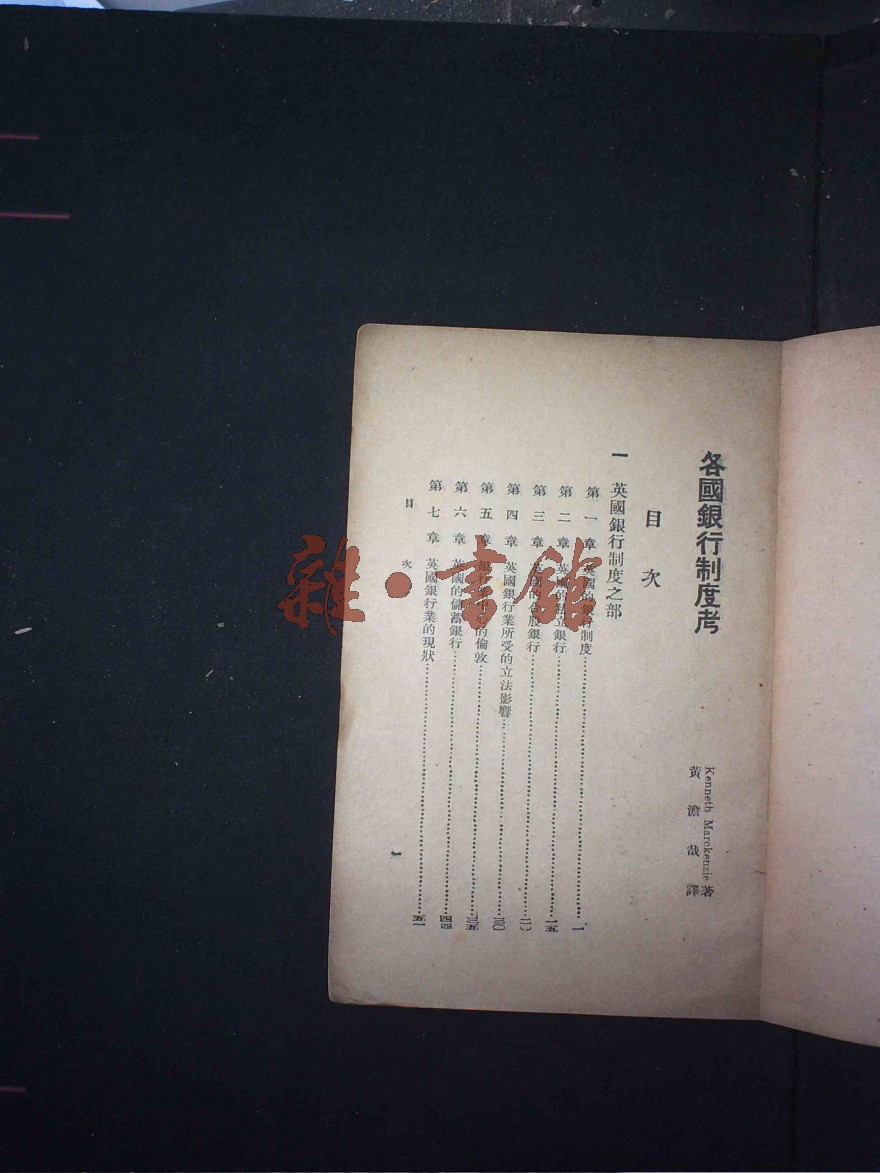 各國銀行制度考
Kenneth Marckenzie 著
黃澹哉譯
目次
一 英國銀行制度之部
第一章 英國的銀行制度……一
第二章 英國的私立銀行……一五
第三章 英國的合股銀行……二〇
第四章 英國銀行業所受的立法影響……三〇
第五章 銀行業中心的倫敦……三五
第六章 英國的儲蓄銀行……四四
第七章 英國銀行業的現狀……五一
目次
一
雜·書館